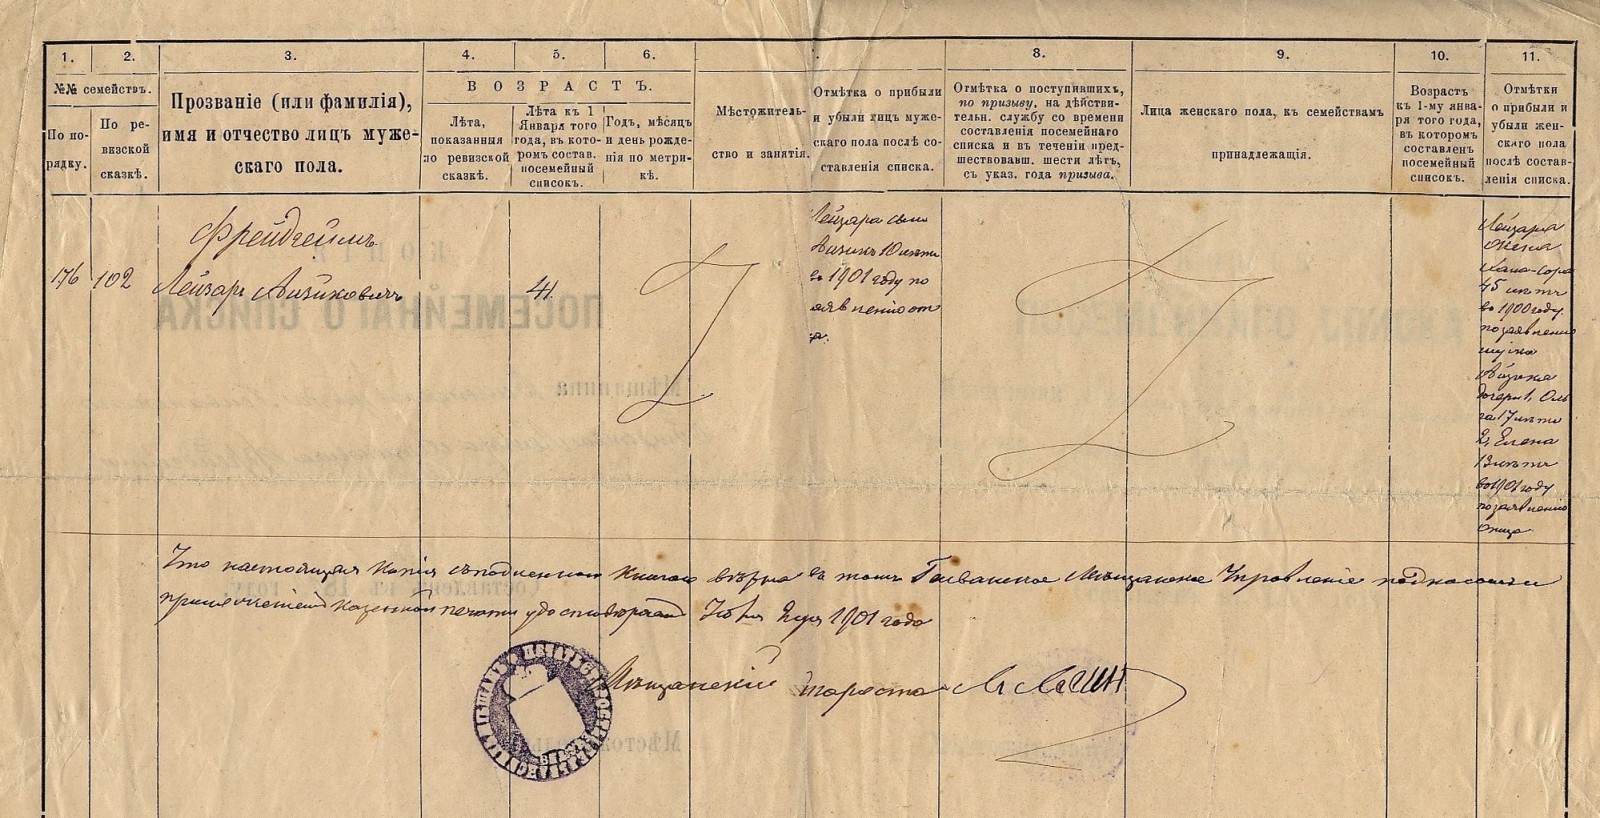 1.
2.
3.
4.
5.
6.
7.
8.
9.
10.
11.
№№ семействъ.
По порядку.
По ревизской сказкѣ.
Прозваніе (или фамилія),
имя и отчество лицъ муже-
скаго пола.
ВОЗРАСТЪ.
Лѣта,
показанныя
по ревизской
сказкѣ.
Лѣта къ 1
Января того
года, въ кото-
ромъ состав.
посемейный
списокъ.
Годъ, мѣсяцъ
и день рожде-
нія по метри-
кѣ.
Мѣстожитель-
ство и занятія.
Отмѣтка о прибыли
и убыли лицъ муже-
скаго пола послѣ со-
ставленія списка.
Отмѣтка о поступившихъ,
по призыву, на дѣйстви-
тельн. службу со времени
составленія посемейнаго
списка и въ теченіи пред-
шествовавш. шести лѣтъ,
съ указ. года призыва.
Лица женскаго пола, къ семействамъ
принадлежащія.
Возрастъ
къ 1-му янва-
ря того года,
въ которомъ
составленъ
посемейный
списокъ.
Отмѣтки
о прибыли и
убыли жен-
скаго пола
послѣ состав-
ленія списка.
176
102
Фрейдгеймъ
Лейзаръ Айзиковичъ
41.
Лейзара сынъ
Айзикъ 10 лѣтъ
въ 1901 году по
заявленію от
ца.
Лейзара
жена
Хана-Сора
45 лѣтъ
въ 1900 году
по заявленію
мужа
Айзика
дочери 1, Оль
га 17 лѣтъ
2, Елена
13 лѣтъ
въ 1901 году
по заявленію
отца
Что настоящая копія съ подлинною книгою вѣрна въ томъ Мѣщанское Управленіе подписомъ и
приложеніемъ казенной печати удостовѣряетъ 1901 года
Мѣщанскій староста